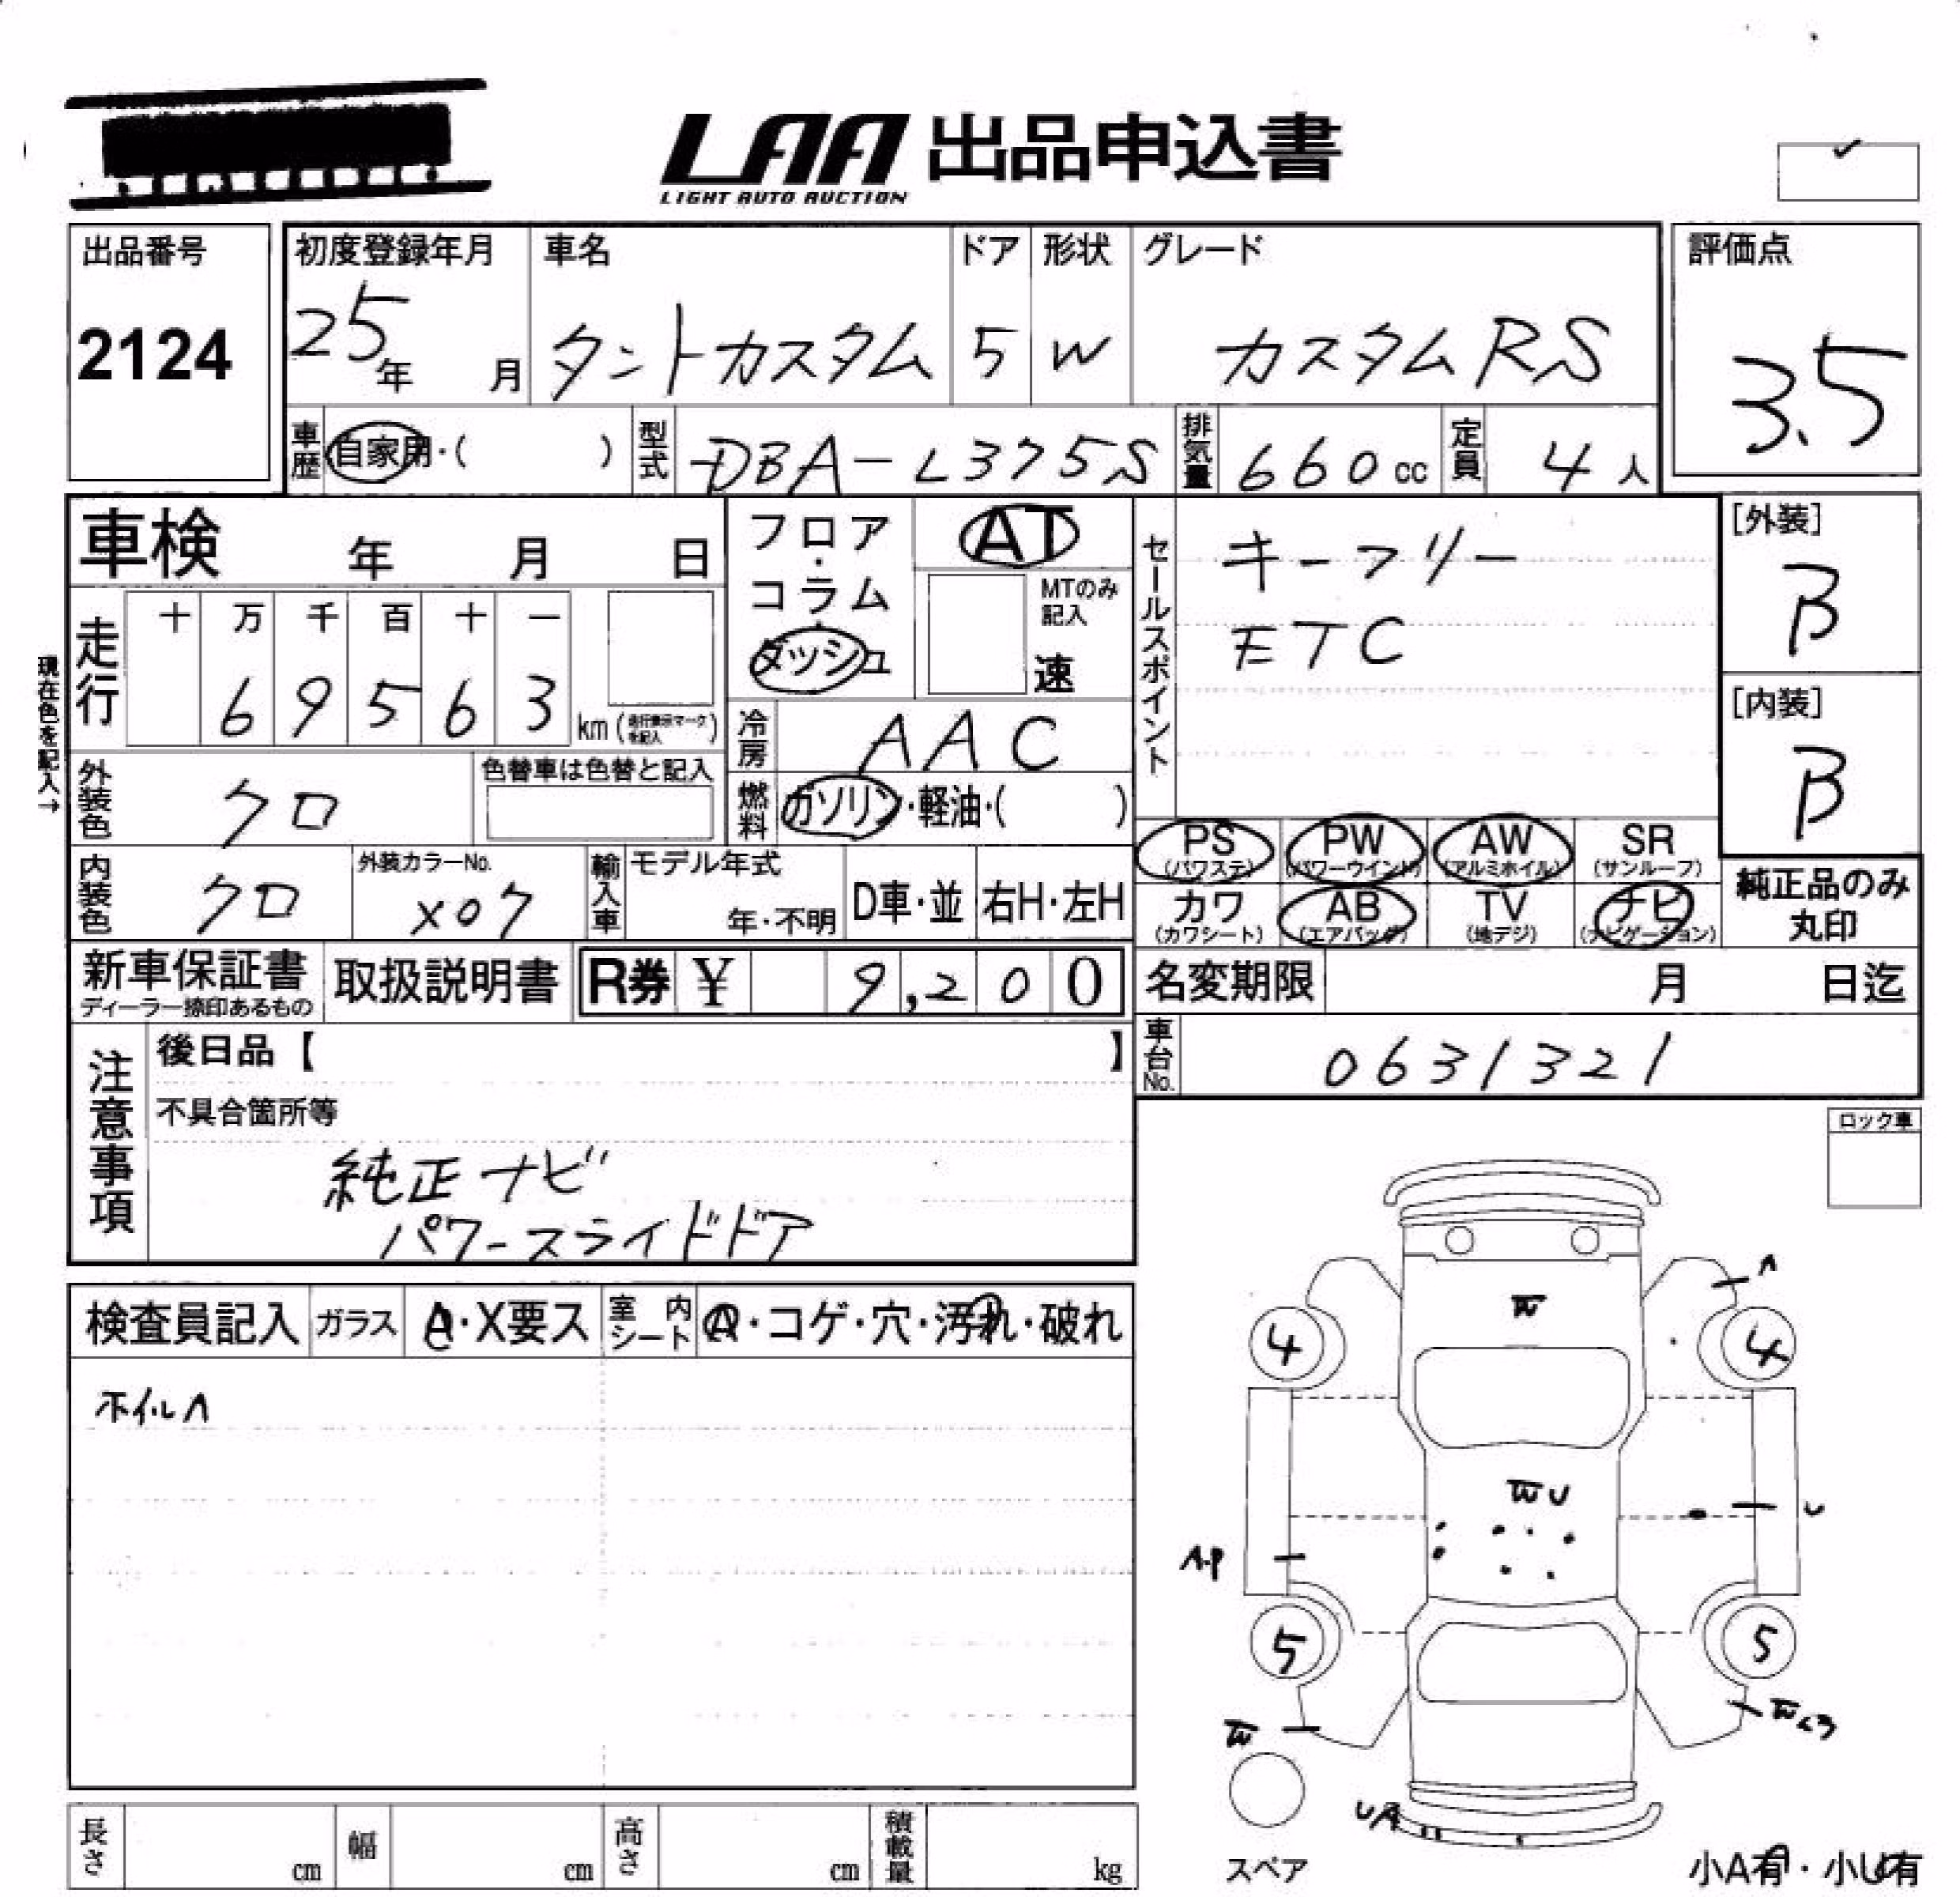 LAA 出品申込書
LIGHT AUTO AUCTION
出品番号
2124
初度登録年月
25年 月
車名
タントカスタム
ドア
5
形状
W
グレード
カスタムRS
評価点
3.5
車歴 自家用・( )
型式 DBA-L375S
排気量 660cc
定員 4人
車検 年 月 日
フロア・コラム・ダッシュ
AT
MTのみ記入
速
セールスポイント
キーフリー
ETC
[外装]
B
[内装]
B
現在色を記入→
走行
十 万 千 百 十 一
6 9 5 6 3 km (走行表示マークを記入)
冷房 AAC
外装色 クロ
色替車は色替と記入
燃料 ガソリン・軽油・( )
PS (パワステ)
PW (パワーウインド)
AW (アルミホイル)
SR (サンルーフ)
カワ (カワシート)
AB (エアバッグ)
TV (地デジ)
ナビ (ナビゲーション)
純正品のみ丸印
内装色 クロ
外装カラーNo.
X07
輸入車
モデル年式
年・不明
D車・並
右H・左H
新車保証書
ディーラー捺印あるもの
取扱説明書
R券 ¥ 9,200
名変期限 月 日迄
車台No. 0631321
注意事項
後日品【 】
不具合箇所等
純正ナビ
パワースライドドア
ロック車
検査員記入
ガラス A・X要ス
室内シート A・コゲ・穴・汚れ・破れ
ホイルA
A
W
4
4
WU
U
AP
5
5
W
UA
スペア
小A有・小U有
長さ cm
幅 cm
高さ cm
積載量 kg